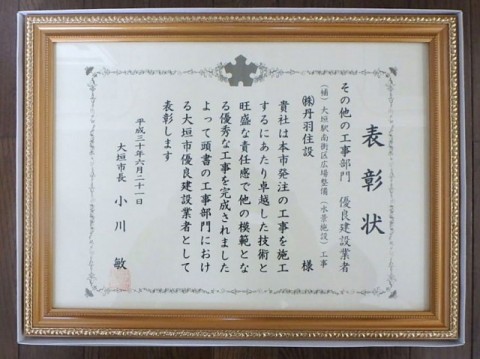 表彰状
その他の工事部門 優良建設業者
(補)大垣駅南街区広場整備(水景施設)工事
㈱丹羽住設 様
貴社は本市発注の工事を施工
するにあたり卓越した技術と
旺盛な責任感で他の模範とな
る優秀な工事を完成されました
よって頭書の工事部門におけ
る大垣市優良建設業者として
表彰します
平成三十年六月二十一日
大垣市長 小川敏